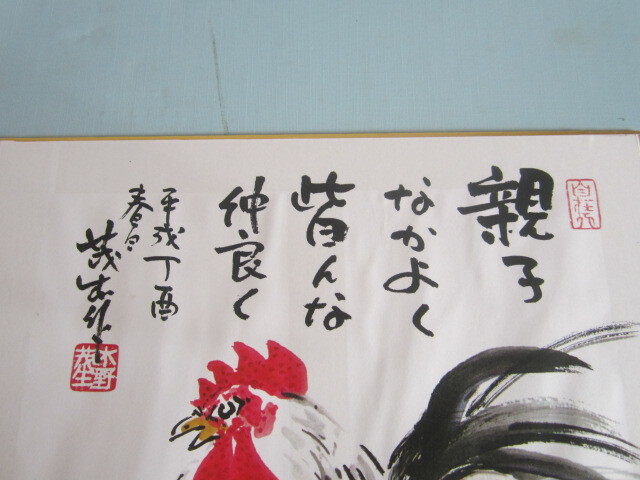 親子
なかよく
皆んな
仲良く
平成丁酉
春日
木野
茂生